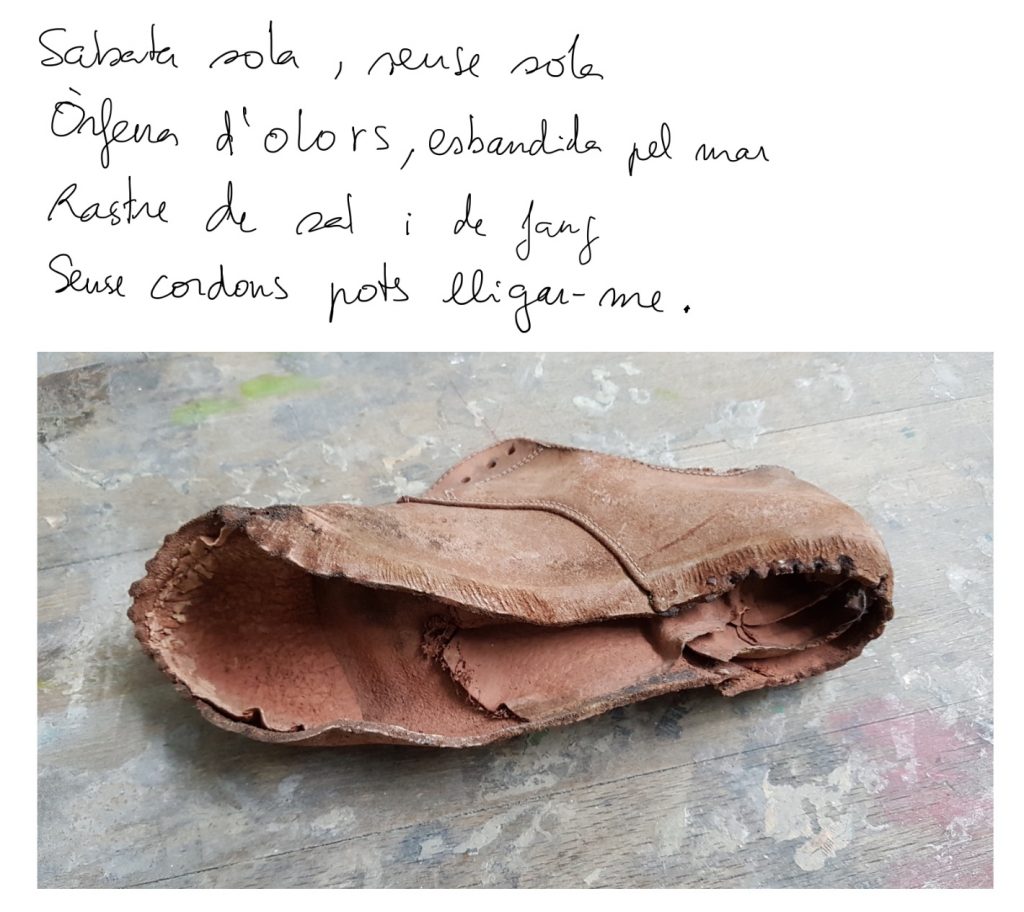 Sabata sola, sense sola
Òrfena d'olors, esbandida pel mar
Rastre de sal i de fang
Sense cordons pots lligar-me.